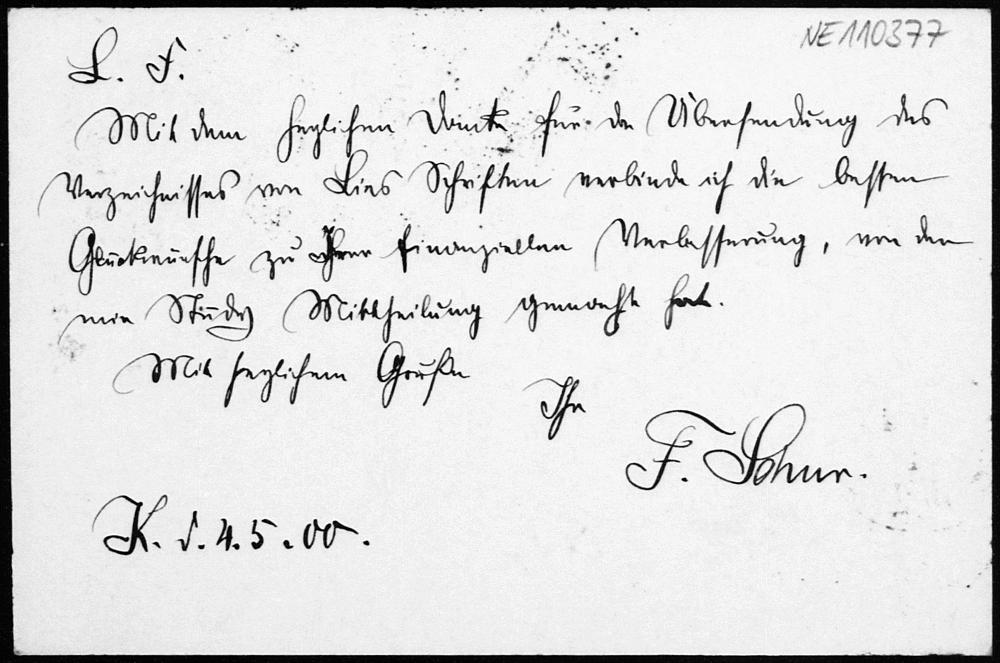 NE 110377
L. F.
Mit dem herzlichen Danke für die Übersendung des
Verzeichnisses von Lies Schriften verbinde ich die besten
Glückwünsche zu Ihrer finanziellen Verbesserung, von der
mir Study Mittheilung gemacht hat.
Mit herzlichem Gruße
Ihr
F. Schur.
K. d. 4. 5. 00.